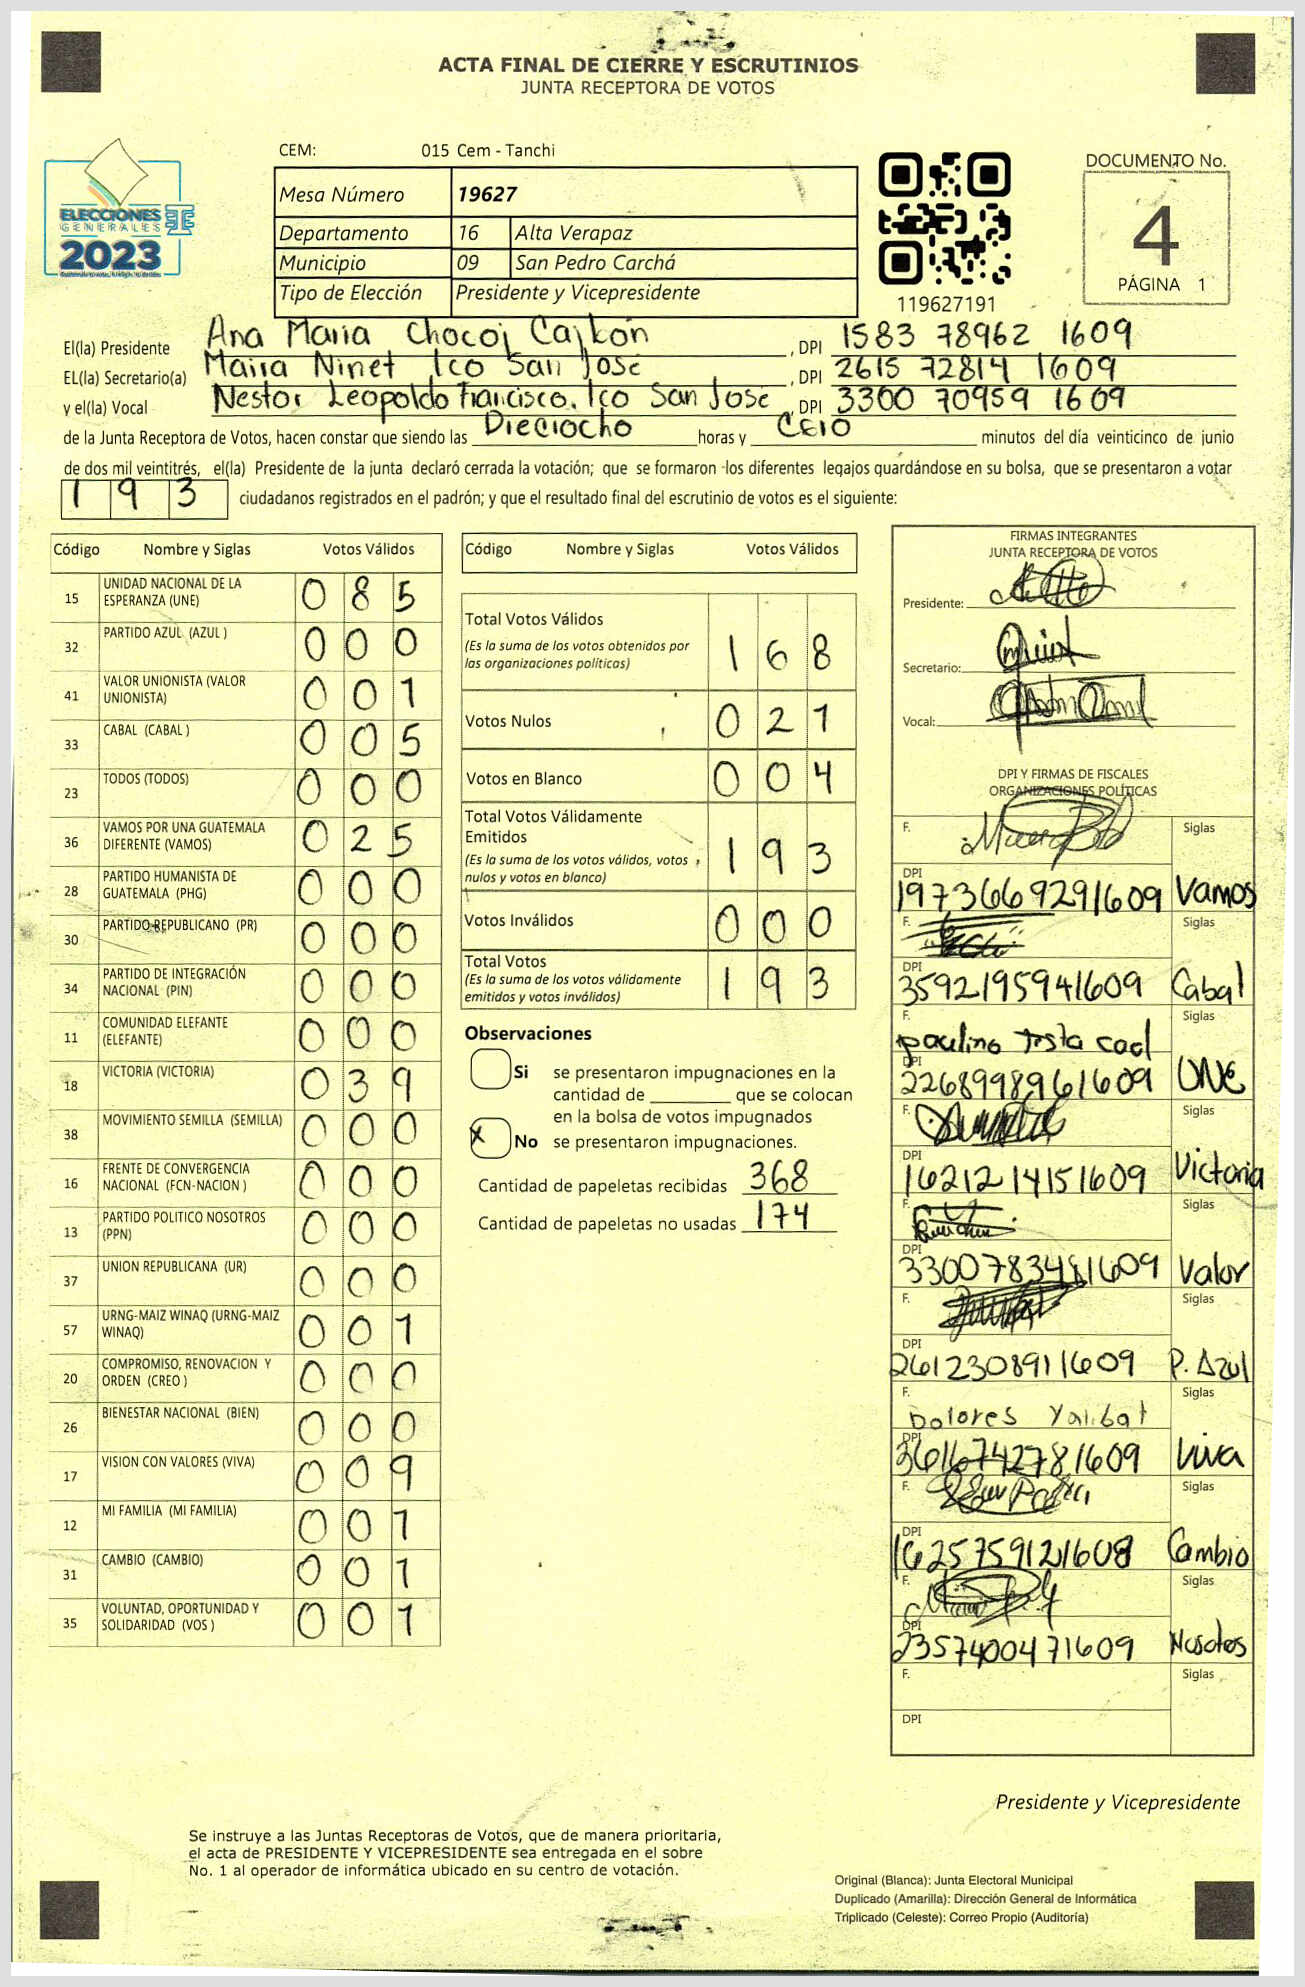 ACTA FINAL DE CIERRE Y ESCRUTINIOS
JUNTA RECEPTORA DE VOTOS
CEM: 015 Cem - Tanchi
ELECCIONES
GENERALES
2023
Mesa Número 19627
Departamento 16 Alta Verapaz
Municipio 09 San Pedro Carchá
Tipo de Elección Presidente y Vicepresidente
119627191
DOCUMENTO No.
4
PÁGINA 1
El(la) Presidente Ana Maria Chocoj Cajbón , DPI 1583 78962 1609
EL(la) Secretario(a) Maira Ninet Ico San Jose , DPI 2615 72814 1609
y el(la) Vocal Nestor Leopoldo Francisco. Ico San Jose , DPI 3300 70959 1609
de la Junta Receptora de Votos, hacen constar que siendo las Dieciocho horas y cero minutos del día veinticinco de junio
de dos mil veintitrés, el(la) Presidente de la junta declaró cerrada la votación; que se formaron los diferentes legajos guardándose en su bolsa, que se presentaron a votar
193 ciudadanos registrados en el padrón; y que el resultado final del escrutinio de votos es el siguiente:
Código Nombre y Siglas Votos Válidos
15 UNIDAD NACIONAL DE LA ESPERANZA (UNE) 085
32 PARTIDO AZUL (AZUL ) 000
41 VALOR UNIONISTA (VALOR UNIONISTA) 001
33 CABAL (CABAL ) 005
23 TODOS (TODOS) 000
36 VAMOS POR UNA GUATEMALA DIFERENTE (VAMOS) 025
28 PARTIDO HUMANISTA DE GUATEMALA (PHG) 000
30 PARTIDO REPUBLICANO (PR) 000
34 PARTIDO DE INTEGRACIÓN NACIONAL (PIN) 000
11 COMUNIDAD ELEFANTE (ELEFANTE) 000
18 VICTORIA (VICTORIA) 039
38 MOVIMIENTO SEMILLA (SEMILLA) 000
16 FRENTE DE CONVERGENCIA NACIONAL (FCN-NACION ) 000
13 PARTIDO POLITICO NOSOTROS (PPN) 000
37 UNION REPUBLICANA (UR) 000
57 URNG-MAIZ WINAQ (URNG-MAIZ WINAQ) 001
20 COMPROMISO, RENOVACION Y ORDEN (CREO ) 000
26 BIENESTAR NACIONAL (BIEN) 000
17 VISION CON VALORES (VIVA) 009
12 MI FAMILIA (MI FAMILIA) 001
31 CAMBIO (CAMBIO) 001
35 VOLUNTAD, OPORTUNIDAD Y SOLIDARIDAD (VOS ) 001
Código Nombre y Siglas Votos Válidos
Total Votos Válidos 168
(Es la suma de los votos obtenidos por
las organizaciones políticas)
Votos Nulos 021
Votos en Blanco 004
Total Votos Válidamente
Emitidos 193
(Es la suma de los votos válidos, votos
nulos y votos en blanco)
Votos Inválidos 000
Total Votos 193
(Es la suma de los votos válidamente
emitidos y votos inválidos)
Observaciones
Si se presentaron impugnaciones en la
cantidad de ________ que se colocan
en la bolsa de votos impugnados
X No se presentaron impugnaciones.
Cantidad de papeletas recibidas 368
Cantidad de papeletas no usadas 174
FIRMAS INTEGRANTES
JUNTA RECEPTORA DE VOTOS
Presidente:
Secretario:
Vocal:
DPI Y FIRMAS DE FISCALES
ORGANIZACIONES POLÍTICAS
F. Siglas
DPI
1973669291609 Vamos
F. Siglas
DPI
3592195941609 Cabal
F. Siglas
paulino
DPI
2268998961609 UNE
F. Siglas
DPI
1621214151609 Victoria
F. Siglas
DPI
3300783481609 Valor
F. Siglas
DPI
2612308911609 P. Azul
F. Siglas
Dolores Yalibat
DPI
3616742781609 Viva
F. Siglas
DPI
1625759121608 Cambio
F. Siglas
DPI
2357400471609 Nosotos
F. Siglas
DPI
Presidente y Vicepresidente
Se instruye a las Juntas Receptoras de Votos, que de manera prioritaria,
el acta de PRESIDENTE Y VICEPRESIDENTE sea entregada en el sobre
No. 1 al operador de informática ubicado en su centro de votación.
Original (Blanca): Junta Electoral Municipal
Duplicado (Amarilla): Dirección General de Informática
Triplicado (Celeste): Correo Propio (Auditoría)